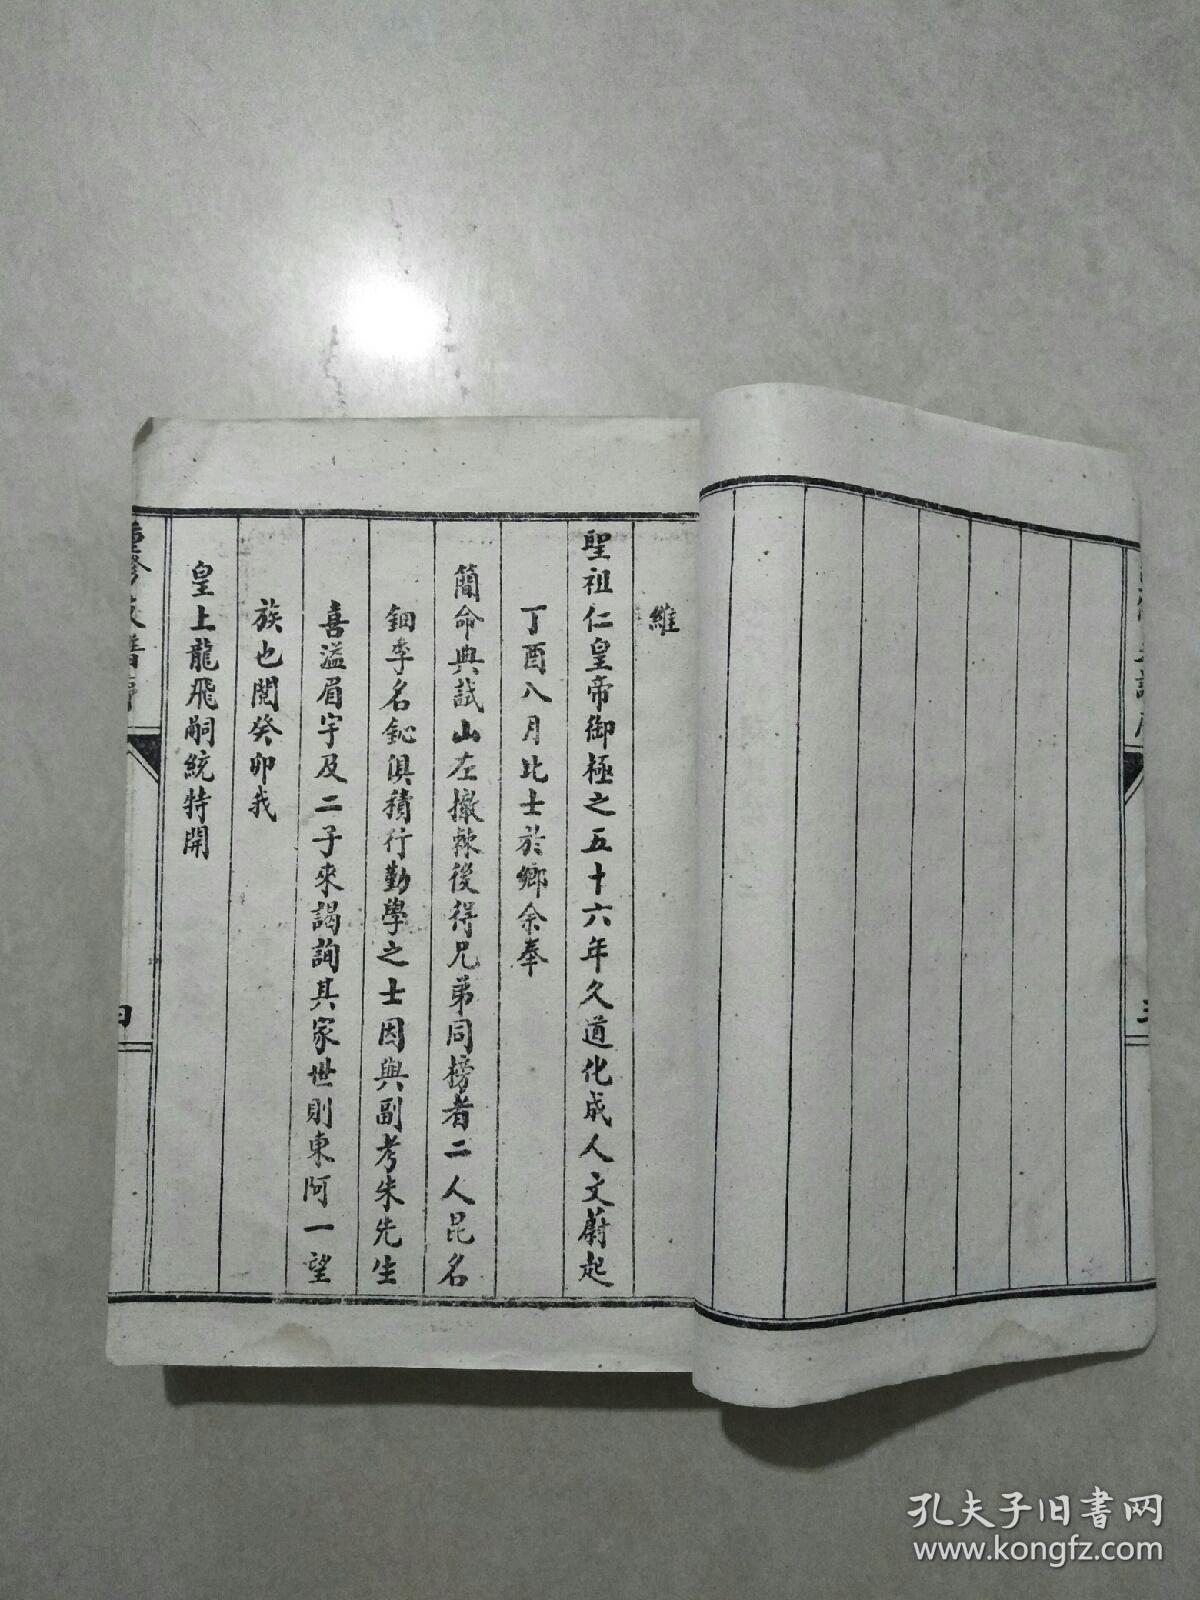 維
聖祖仁皇帝御極之五十六年久道化成人文蔚起
丁酉八月比士於鄉余奉
簡命典試山左撤棘後得兄弟同榜者二人昆名
鈿季名鉍俱積行勤學之士因與副考朱先生
喜溢眉宇及二子來謁詢其家世則東阿一望
族也閱癸卯我
皇上龍飛嗣統特開
重修族譜
四
孔夫子旧书网
www.kongfz.com